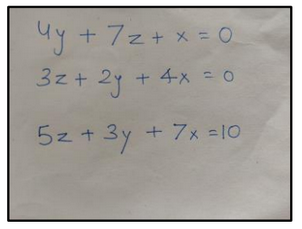 4y + 7z + x = 0
3z + 2y + 4x = 0
5z + 3y + 7x = 10